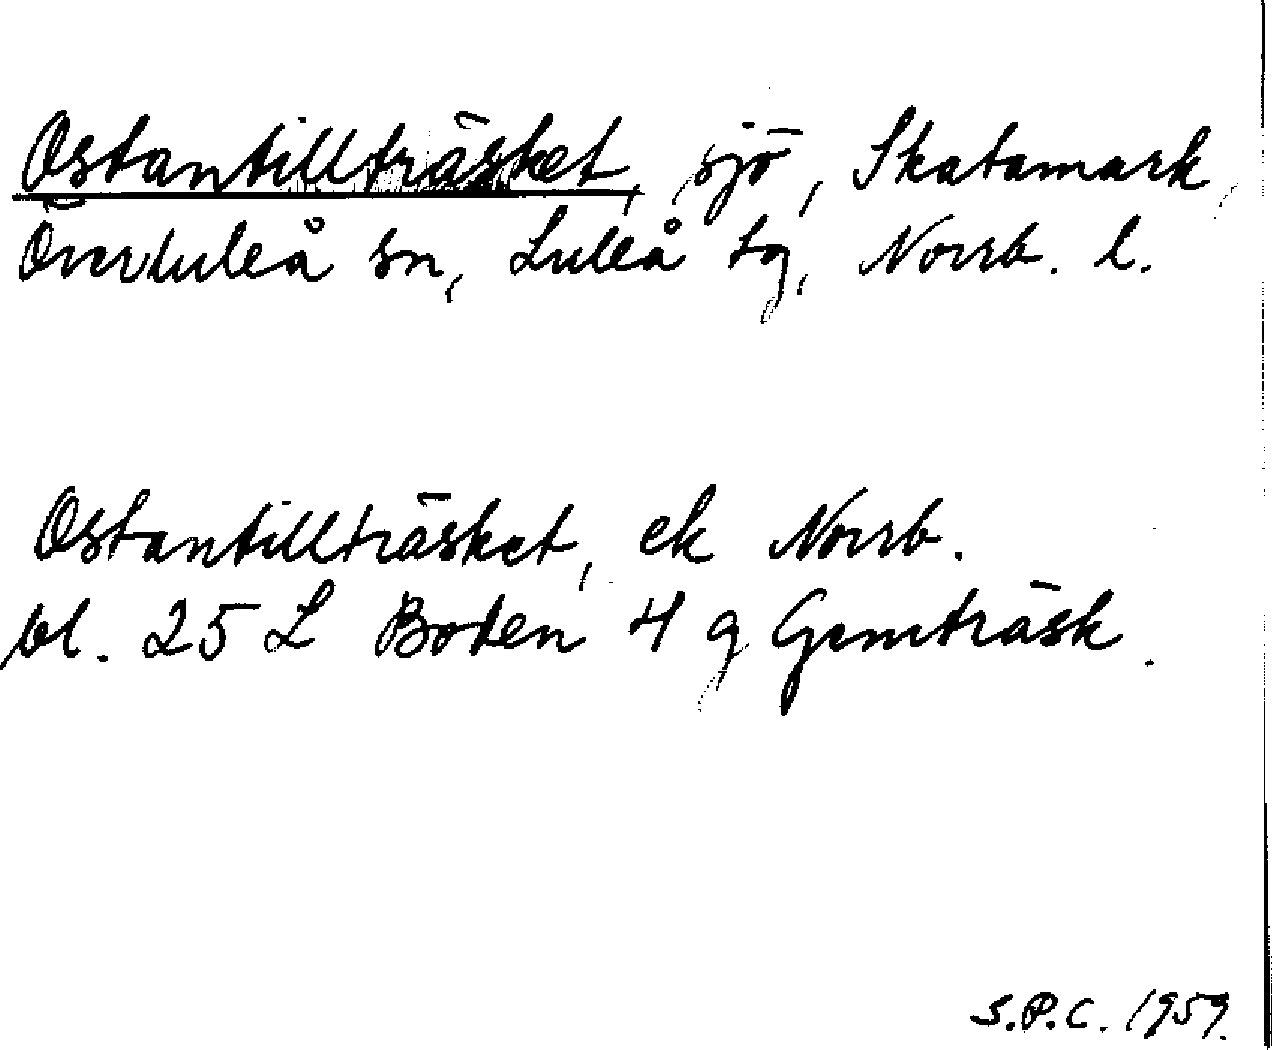 Ostantillträsket, sjö, Skatamark,
Överluleå sn, Luleå tg, Norrb. l.
Ostantillträsket, ek Norrb.
bl. 25 L Boden 4 g Gemträsk.
S.P.C. 1959.